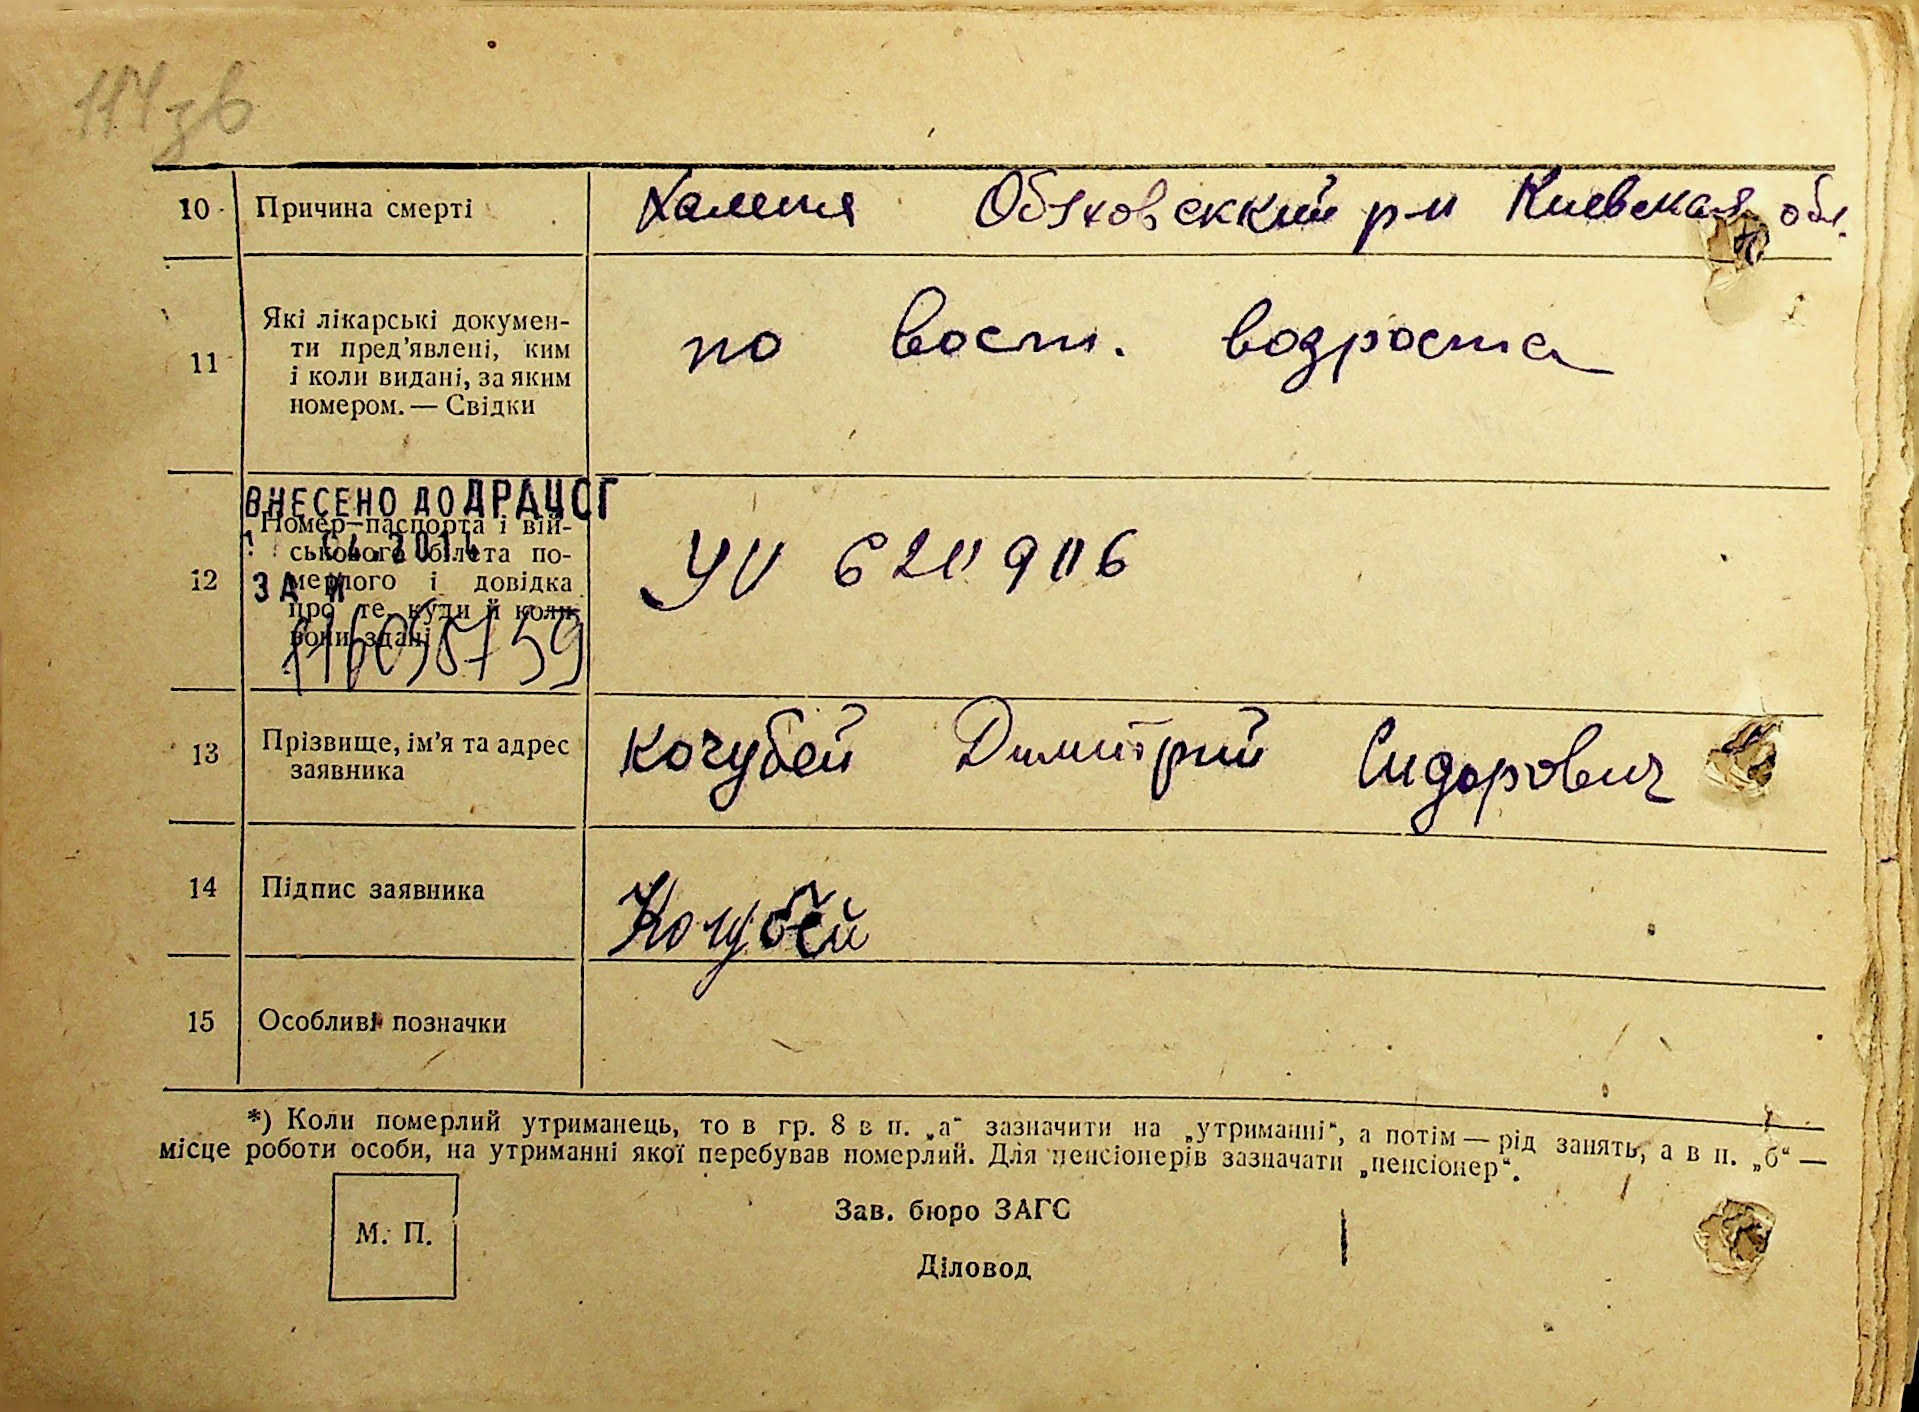 114зв
10 Причина смерті Халепя Обуховсккий р-н Киевская обл.
Які лікарські докумен-
ти пред'явлені, ким
11 і коли видані, за яким по восст. возроста
номером. — Свідки
ВНЕСЕНО ДО ДРАЦСГ
Номер паспорта і вій-
ськового білета по-
12 мерлого і довідка
про те, куди й коли
вони здані
ЗА №
13 Прізвище, ім'я та адрес Кочубей Димитрий Сидорович
заявника
14 Підпис заявника Кочубей
15 Особливі позначки
*) Коли померлий утриманець, то в гр. 8 в п. „а“ зазначити на „утриманні“, а потім — рід занять, а в п. „б“ —
місце роботи особи, на утриманні якої перебував померлий. Для пенсіонерів зазначати „пенсіонер“.
М. П.
Зав. бюро ЗАГС
Діловод